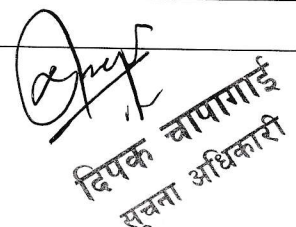 दिपक चापागाई
सूचना अधिकारी